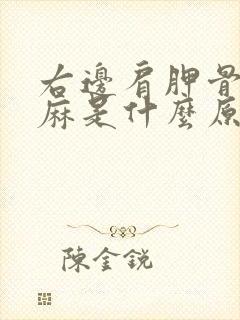 右邊肩胛骨
麻是什麼原
陳金銳